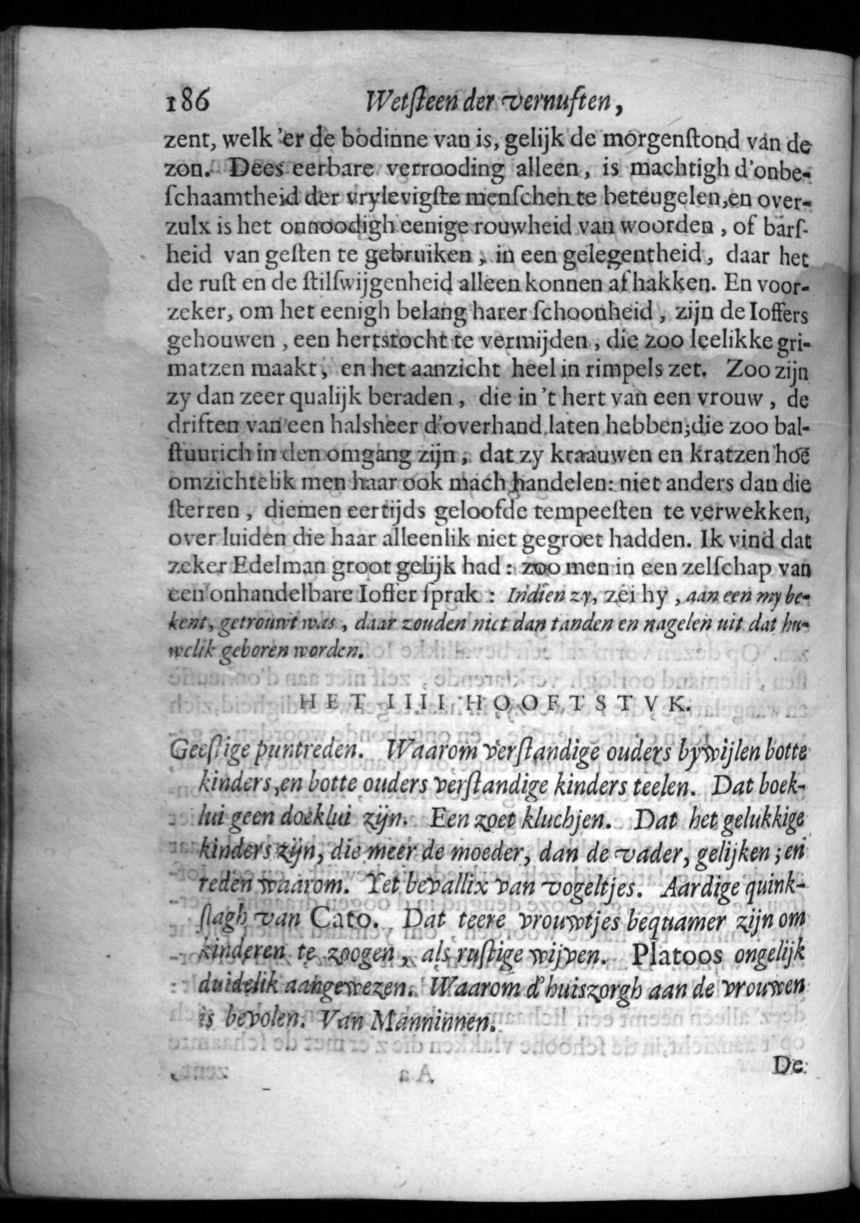 186 Wetſteen der vernuften,
zent, welk 'er de bodinne van is, gelijk de morgenſtond van de
zon. Dees eerbare verrooding alleen, is machtigh d'onbe-
ſchaamtheid der vrylevigſte menſchen te beteugelen, en over-
zulx is het onnoodigh eenige rouwheid van woorden, of barſ-
heid van geſten te gebruiken, in een gelegentheid, daar het
de ruſt en de ſtilſwijgenheid alleen konnen afhakken. En voor-
zeker, om het eenigh belang harer ſchoonheid, zijn de Ioffers
gehouwen, een hertstocht te vermijden, die zoo leelikke gri-
matzen maakt, en het aanzicht heel in rimpels zet. Zoo zijn
zy dan zeer qualijk beraden, die in 't hert van een vrouw, de
driften van een halsheer d'overhand laten hebben; die zoo bal-
ſtuurich in den omgang zijn, dat zy kraauwen en kratzen hoe
omzichtelik men haar ook mach handelen: niet anders dan die
ſterren, diemen eertijds geloofde tempeeſten te verwekken,
over luiden die haar alleenlik niet gegroet hadden. Ik vind dat
zeker Edelman groot gelijk had: zoo men in een zelſchap van
een onhandelbare Ioffer ſprak: Indien zy, zei hy, aan een my be-
kent, getrouwt was, daar zouden niet dan tanden en nagelen uit dat hu-
welik geboren worden.
HET IIII HOOFTSTVK.
Geeſtige puntreden. Waarom verſtandige ouders bywijlen botte
kinders, en botte ouders verſtandige kinders teelen. Dat boek-
lui geen doeklui zijn. Een zoet kluchjen. Dat het gelukkige
kinders zijn, die meer de moeder, dan de vader, gelijken; en
reden waarom. Yet bevallix van vogeltjes. Aardige quink-
ſlagh van Cato. Dat teere vrouwtjes bequamer zijn om
kinderen te zoogen, als ruſtige wijven. Platoos ongelijk
duidelik aangewezen. Waarom d'huiszorgh aan de vrouwen
is bevolen. Van Manninnen.
De